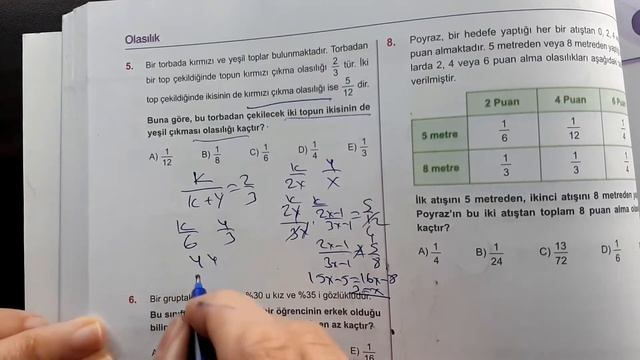 Olasılık
5. Bir torbada kırmızı ve yeşil toplar bulunmaktadır. Torbadan
bir top çekildiğinde topun kırmızı çıkma olasılığı 2/3 tür. İki
top çekildiğinde ikisinin de kırmızı çıkma olasılığı ise 5/12 dir.
Buna göre, bu torbadan çekilecek iki topun ikisinin de
yeşil çıkması olasılığı kaçtır?
A) 1/12 B) 1/8 C) 1/6 D) 1/4 E) 1/3
K/(K+Y) = 2/3
K/2x Y/x
2x/3x · (2x-1)/(3x-1) = 5/12
K/6 Y/3
(2x-1)/(3x-1) 5/8
YY
15x-5=16x-8
3=x
6. Bir gruptaki %30 u kız ve %35 i gözlüklüdür.
Bu sınıf bir öğrencinin erkek olduğu
bilin en az kaçtır?
E) 1/16
8. Poyraz, bir hedefe yaptığı her bir atıştan 0, 2, 4
puan almaktadır. 5 metreden veya 8 metreden
larda 2, 4 veya 6 puan alma olasılıkları aşağıda
verilmiştir.
2 Puan 4 Puan 6
5 metre 1/6 1/12 1/4
8 metre 1/3 1/3 1/4
İlk atışını 5 metreden, ikinci atışını 8 metreden
Poyraz'ın bu iki atıştan toplam 8 puan alma
kaçtır?
A) 1/4 B) 1/24 C) 13/72 D) 1/6